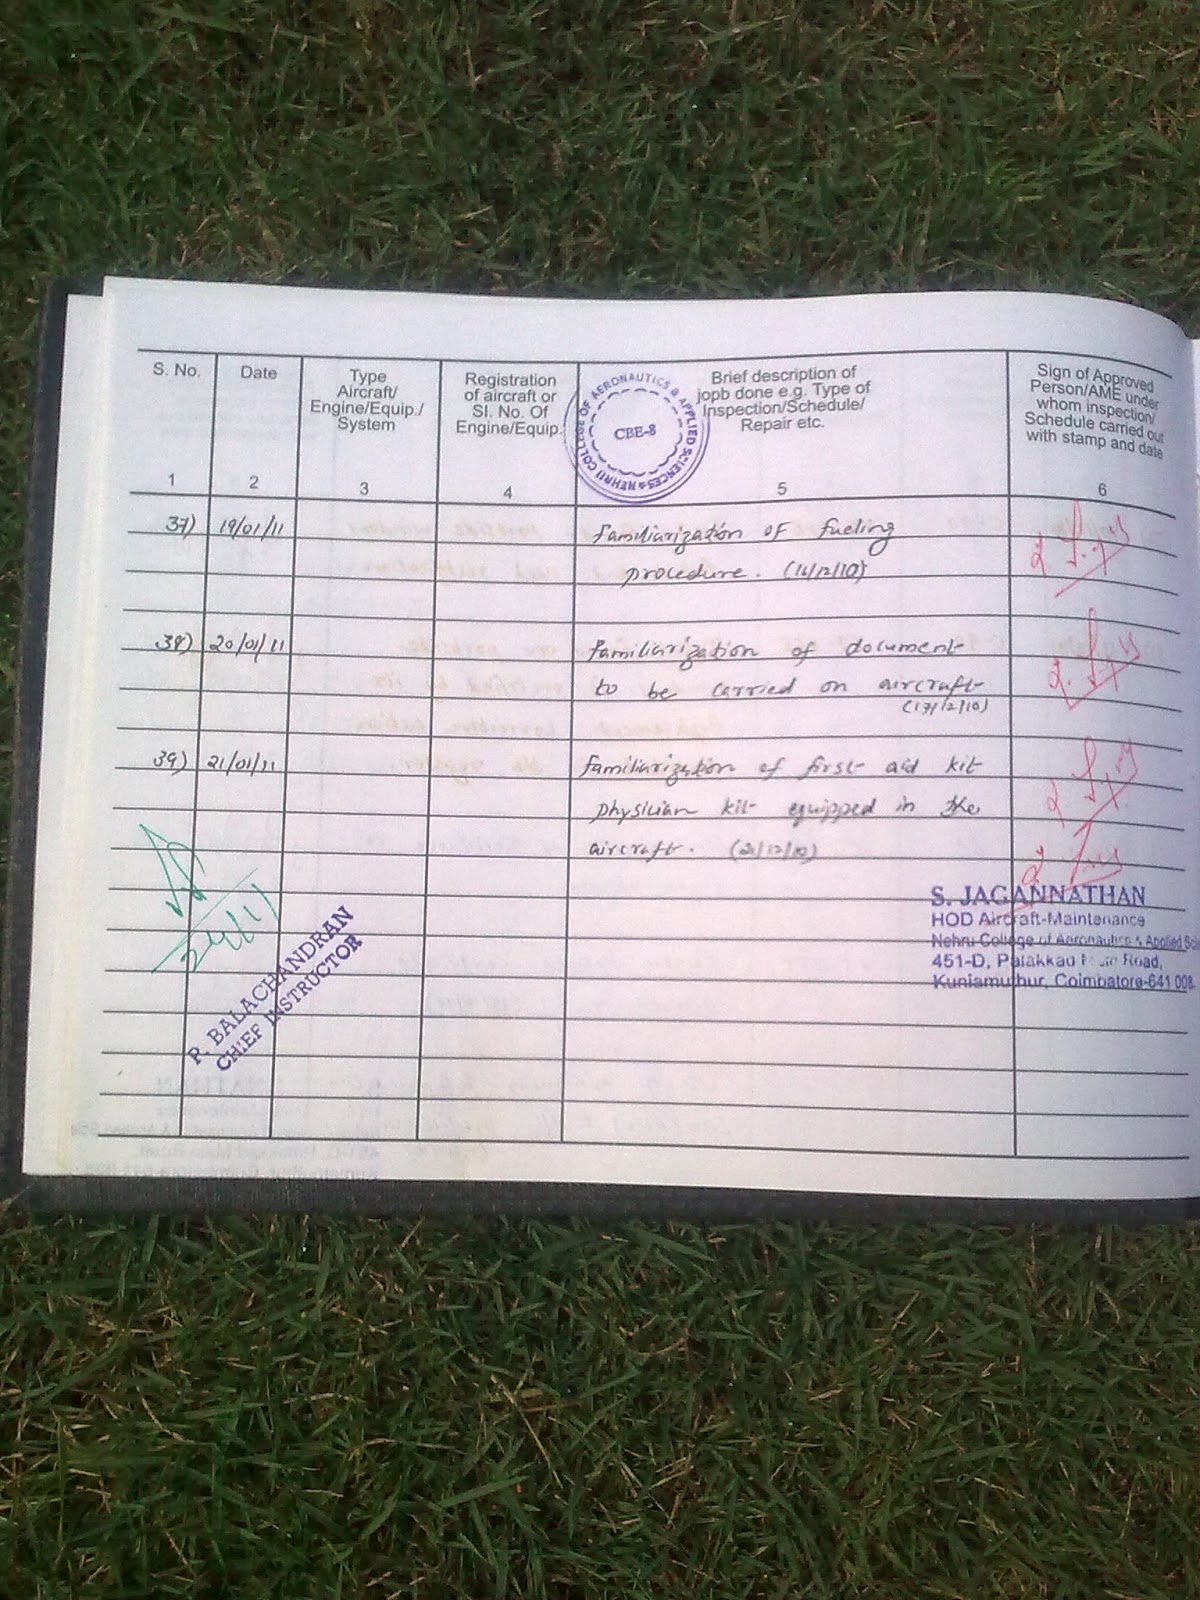 S. No.
Date
Type
Aircraft/
Engine/Equip./
System
Registration
of aircraft or
Sl. No. Of
Engine/Equip.
NEHRU COLLEGE OF AERONAUTICS & APPLIED SCIENCES
CBE-8
Brief description of
jopb done e.g. Type of
Inspection/Schedule/
Repair etc.
Sign of Approved
Person/AME under
whom inspection/
Schedule carried out
with stamp and date
1 2 3 4 5 6
37) 19/01/11 Familiarization of fueling
procedure. (14/12/10)
38) 20/01/11 Familiarization of document
to be carried on aircraft
(17/12/10)
39) 21/01/11 Familiarization of first aid kit
physician kit equipped in the
aircraft. (21/12/10)
P. BALACHANDRAN
CHIEF INSTRUCTOR
S. JAGANNATHAN
HOD Aircraft-Maintenance
Nehru College of Aeronautics & Applied Sci
451-D, Palakkad Main Road,
Kuniamuthur, Coimbatore-641 008.